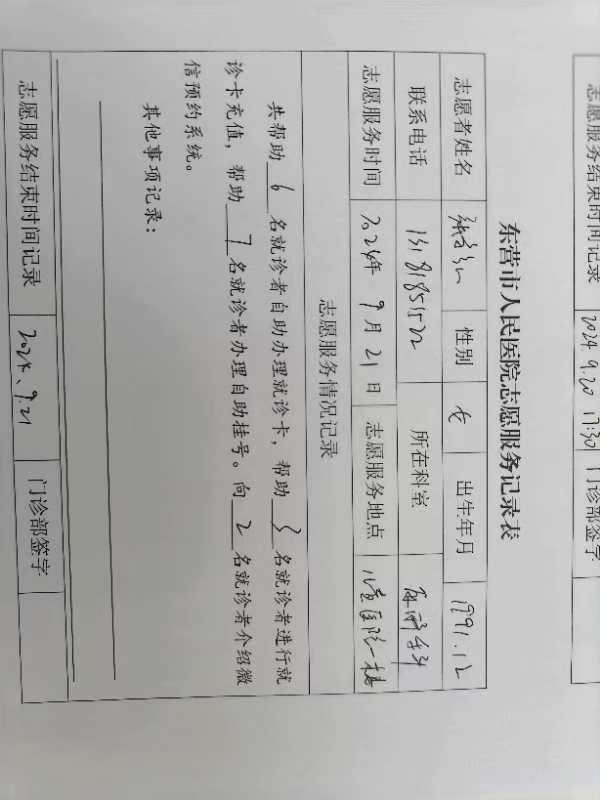 志愿服务结束时间记录 2024.9.20 17:30 门诊部签字
东营市人民医院志愿服务记录表
志愿者姓名 性别 女 出生年月 1991.12
联系电话 15181851522 所在科室
志愿服务时间 2024年 9月21日 志愿服务地点 儿童医院一楼
志愿服务情况记录
共帮助 6 名就诊者自助办理就诊卡，帮助 3 名就诊者进行就
诊卡充值，帮助 7 名就诊者办理自助挂号。向 2 名就诊者介绍微
信预约系统。
其他事项记录：
志愿服务结束时间记录 2024、9.21 门诊部签字